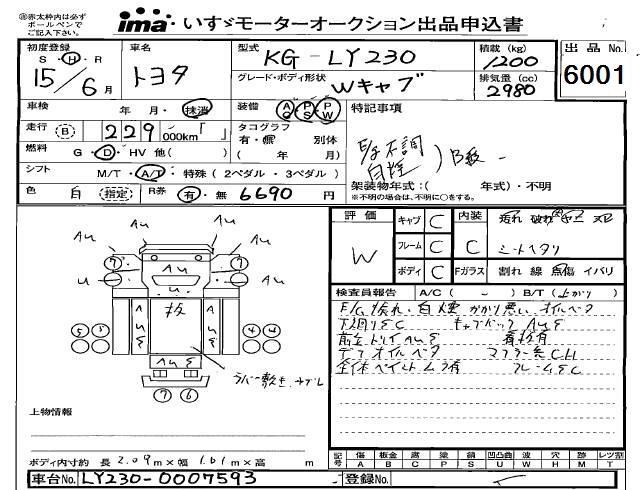 ㊟赤太枠内は必ず
ボールペンで
ご記入下さい。
ima いすゞモーターオークション出品申込書
初度登録 S・H・R 15/6月
車名 トヨタ
型式 KG-LY230
グレード・ボディ形状 Wキャブ
積載(kg) 1200
排気量(cc) 2980
出品No. 6001
車検 年 月・抹消
装備 AC PS PW
特記事項
走行 (B) 229000km「 」
タコグラフ 有・無 別体 ( 年 月)
E/g不調
白煙 ) B級
燃料 G・D・HV 他( )
シフト M/T・A/T・特殊(2ペダル・3ペダル)
架装物年式:( 年式)・不明
※不明の場合は、不明に○をする。
色 白 (指定) R券 有・無 6690円
評価 W
キャブ C
フレーム C
ボディ C
内装 C
Fガラス
汚れ 破れ ヤニ スレ
シートヘタリ
割れ 線 点傷 イバリ
検査員報告 A/C( - ) B/T(上がり)
E/G 汚れ・白煙 かかり悪い オイルベタ
下廻りSC キャブバック AuS
デフ オイルベタ マフラー条CH
全体ペイントムラ有 フレームSC
Au Au Au Au
7 7 u u
Au
u
AuS AuS
AuS
5 5 4 4
7 6
ラバー敷き
上物情報
ボディ内寸約 長 2.09m×幅 1.61m×高 m
記号 傷A 板金B 腐C 塗P 錆S 凹凸曲U 波W 穴H 無M 欠T レツ割R
車台No. LY230-0007593
登録No.